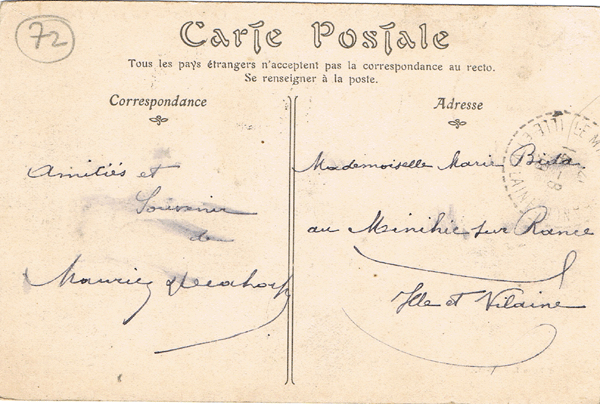 72
Carte Postale
Tous les pays étrangers n'acceptent pas la correspondance au recto.
Se renseigner à la poste.
Correspondance
Adresse
Amitiés et
Souvenir
de
Maurice
Mademoiselle Marie
au Minihic sur Rance
Ille et Vilaine